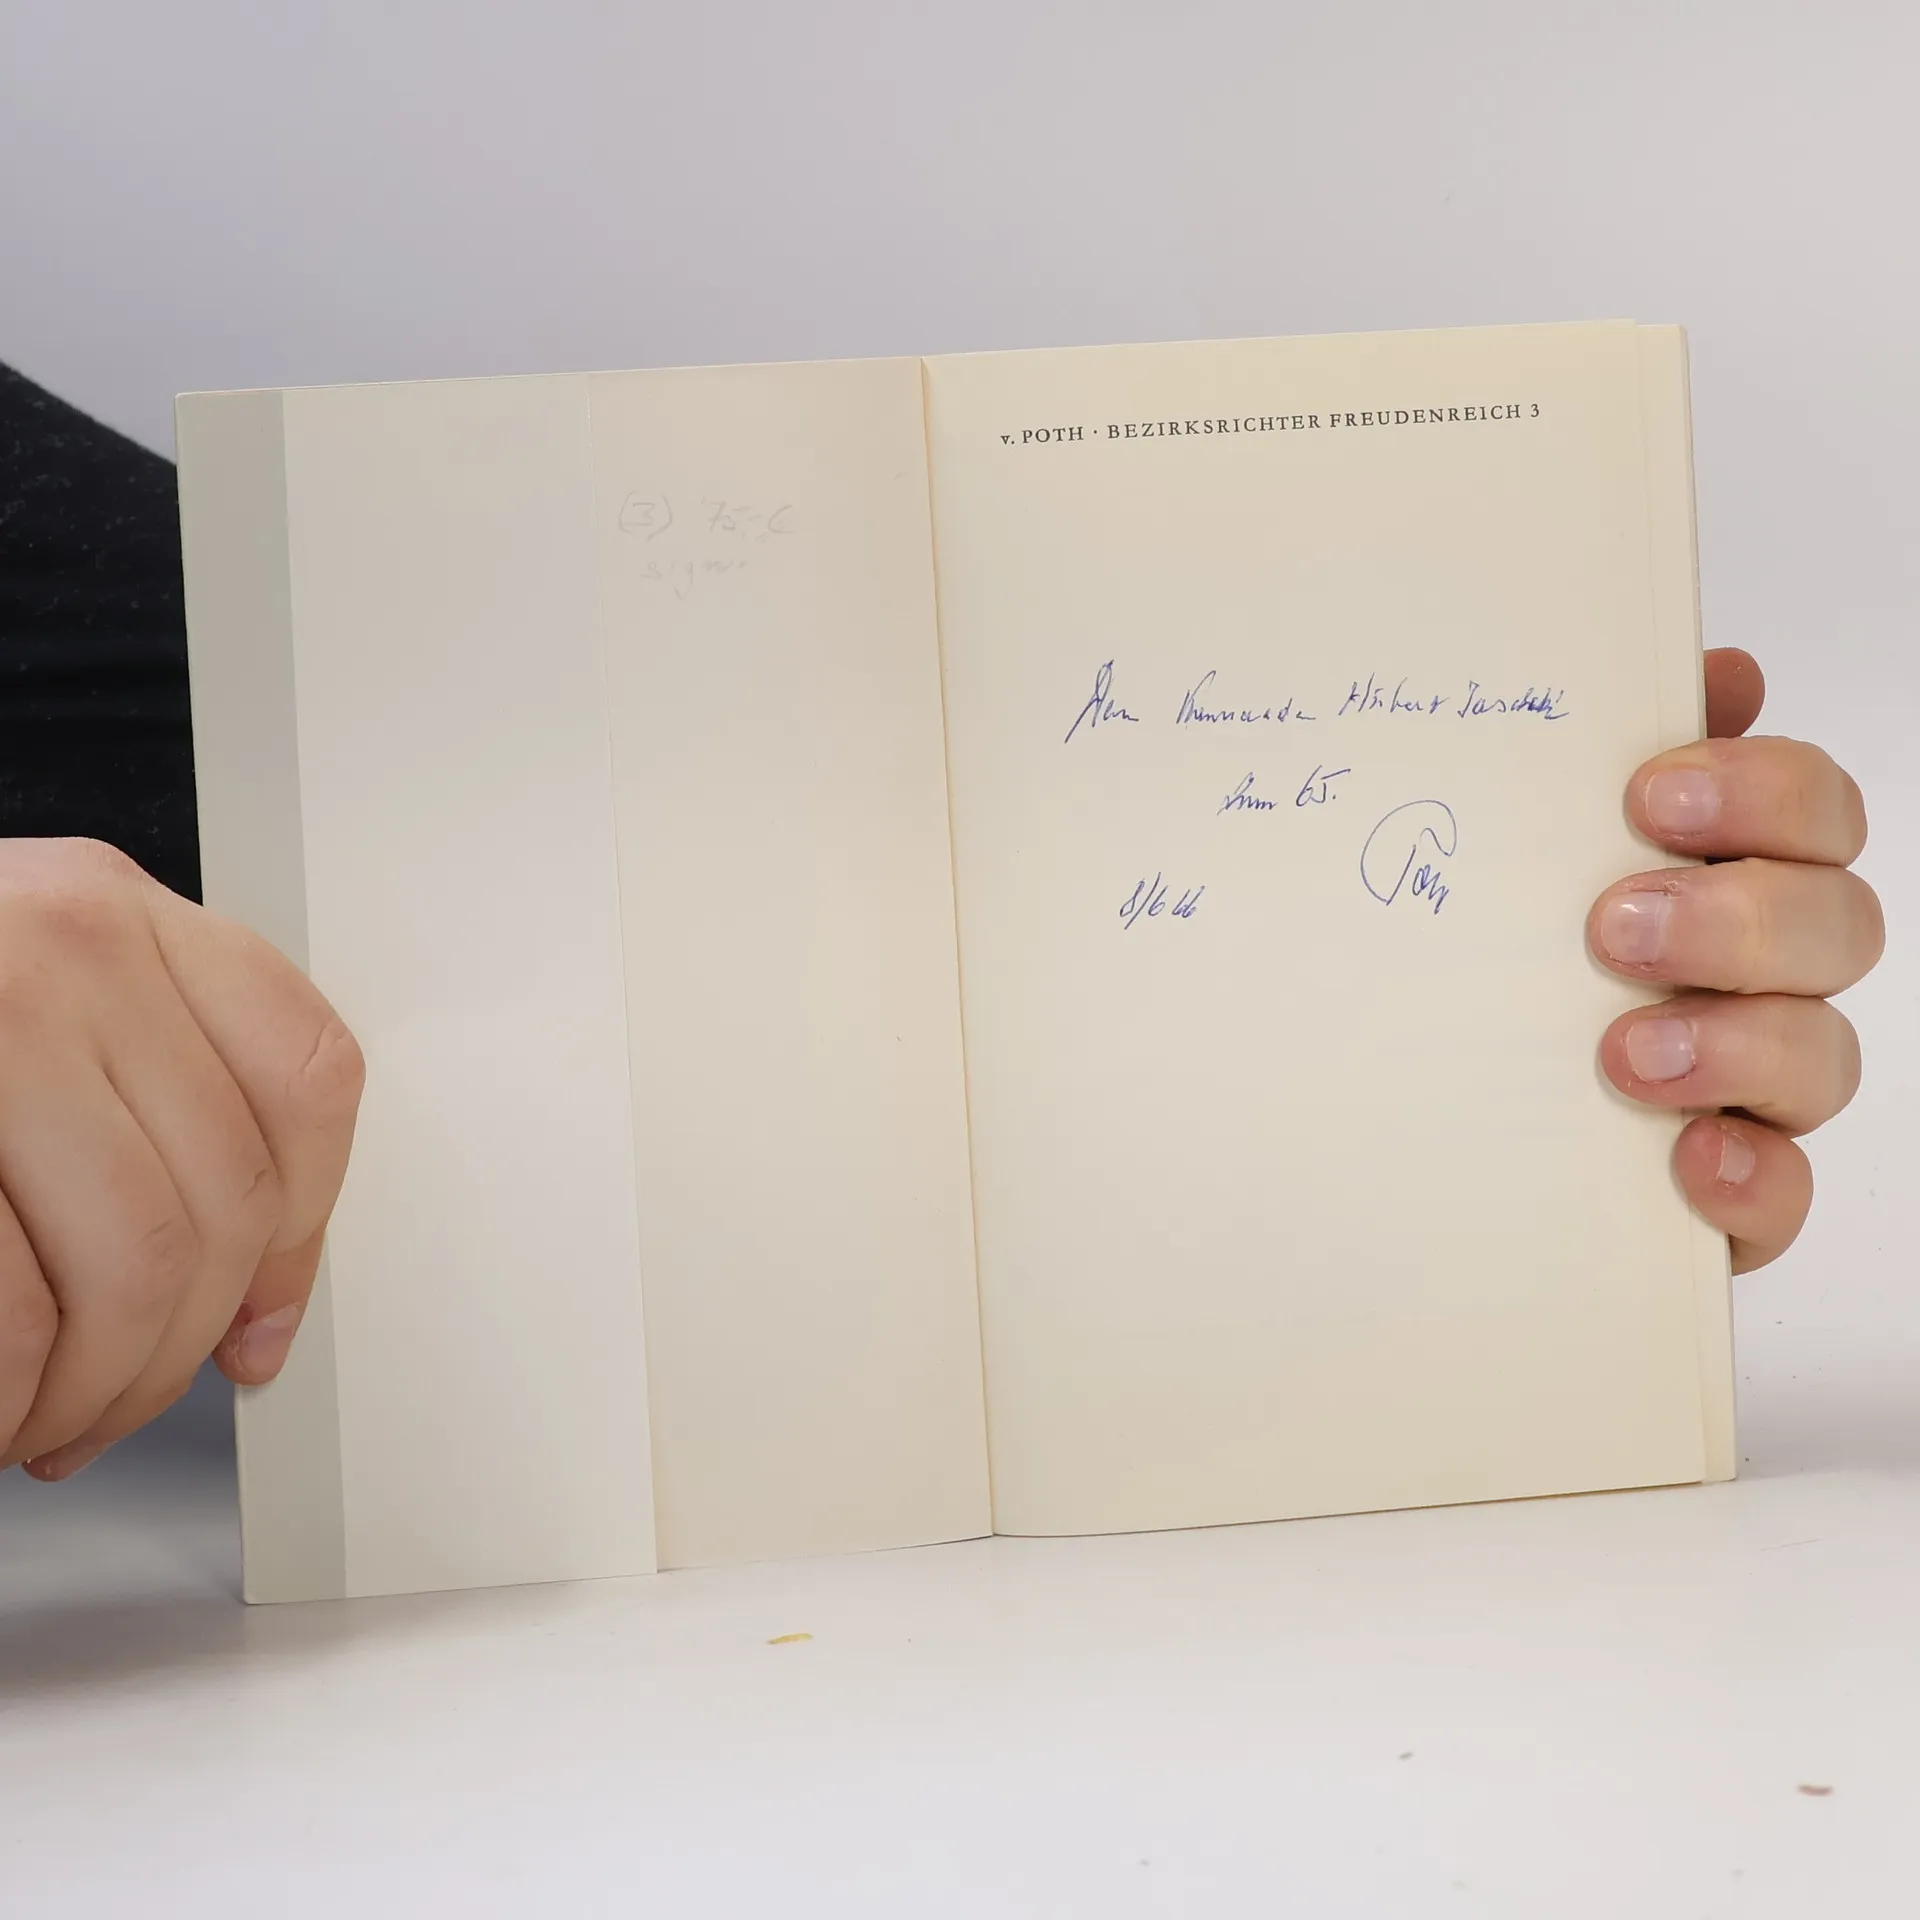 (3) 75,- €
sign.
v. POTH · BEZIRKSRICHTER FREUDENREICH 3
Dem Hubert
zum 65.
8/6 66